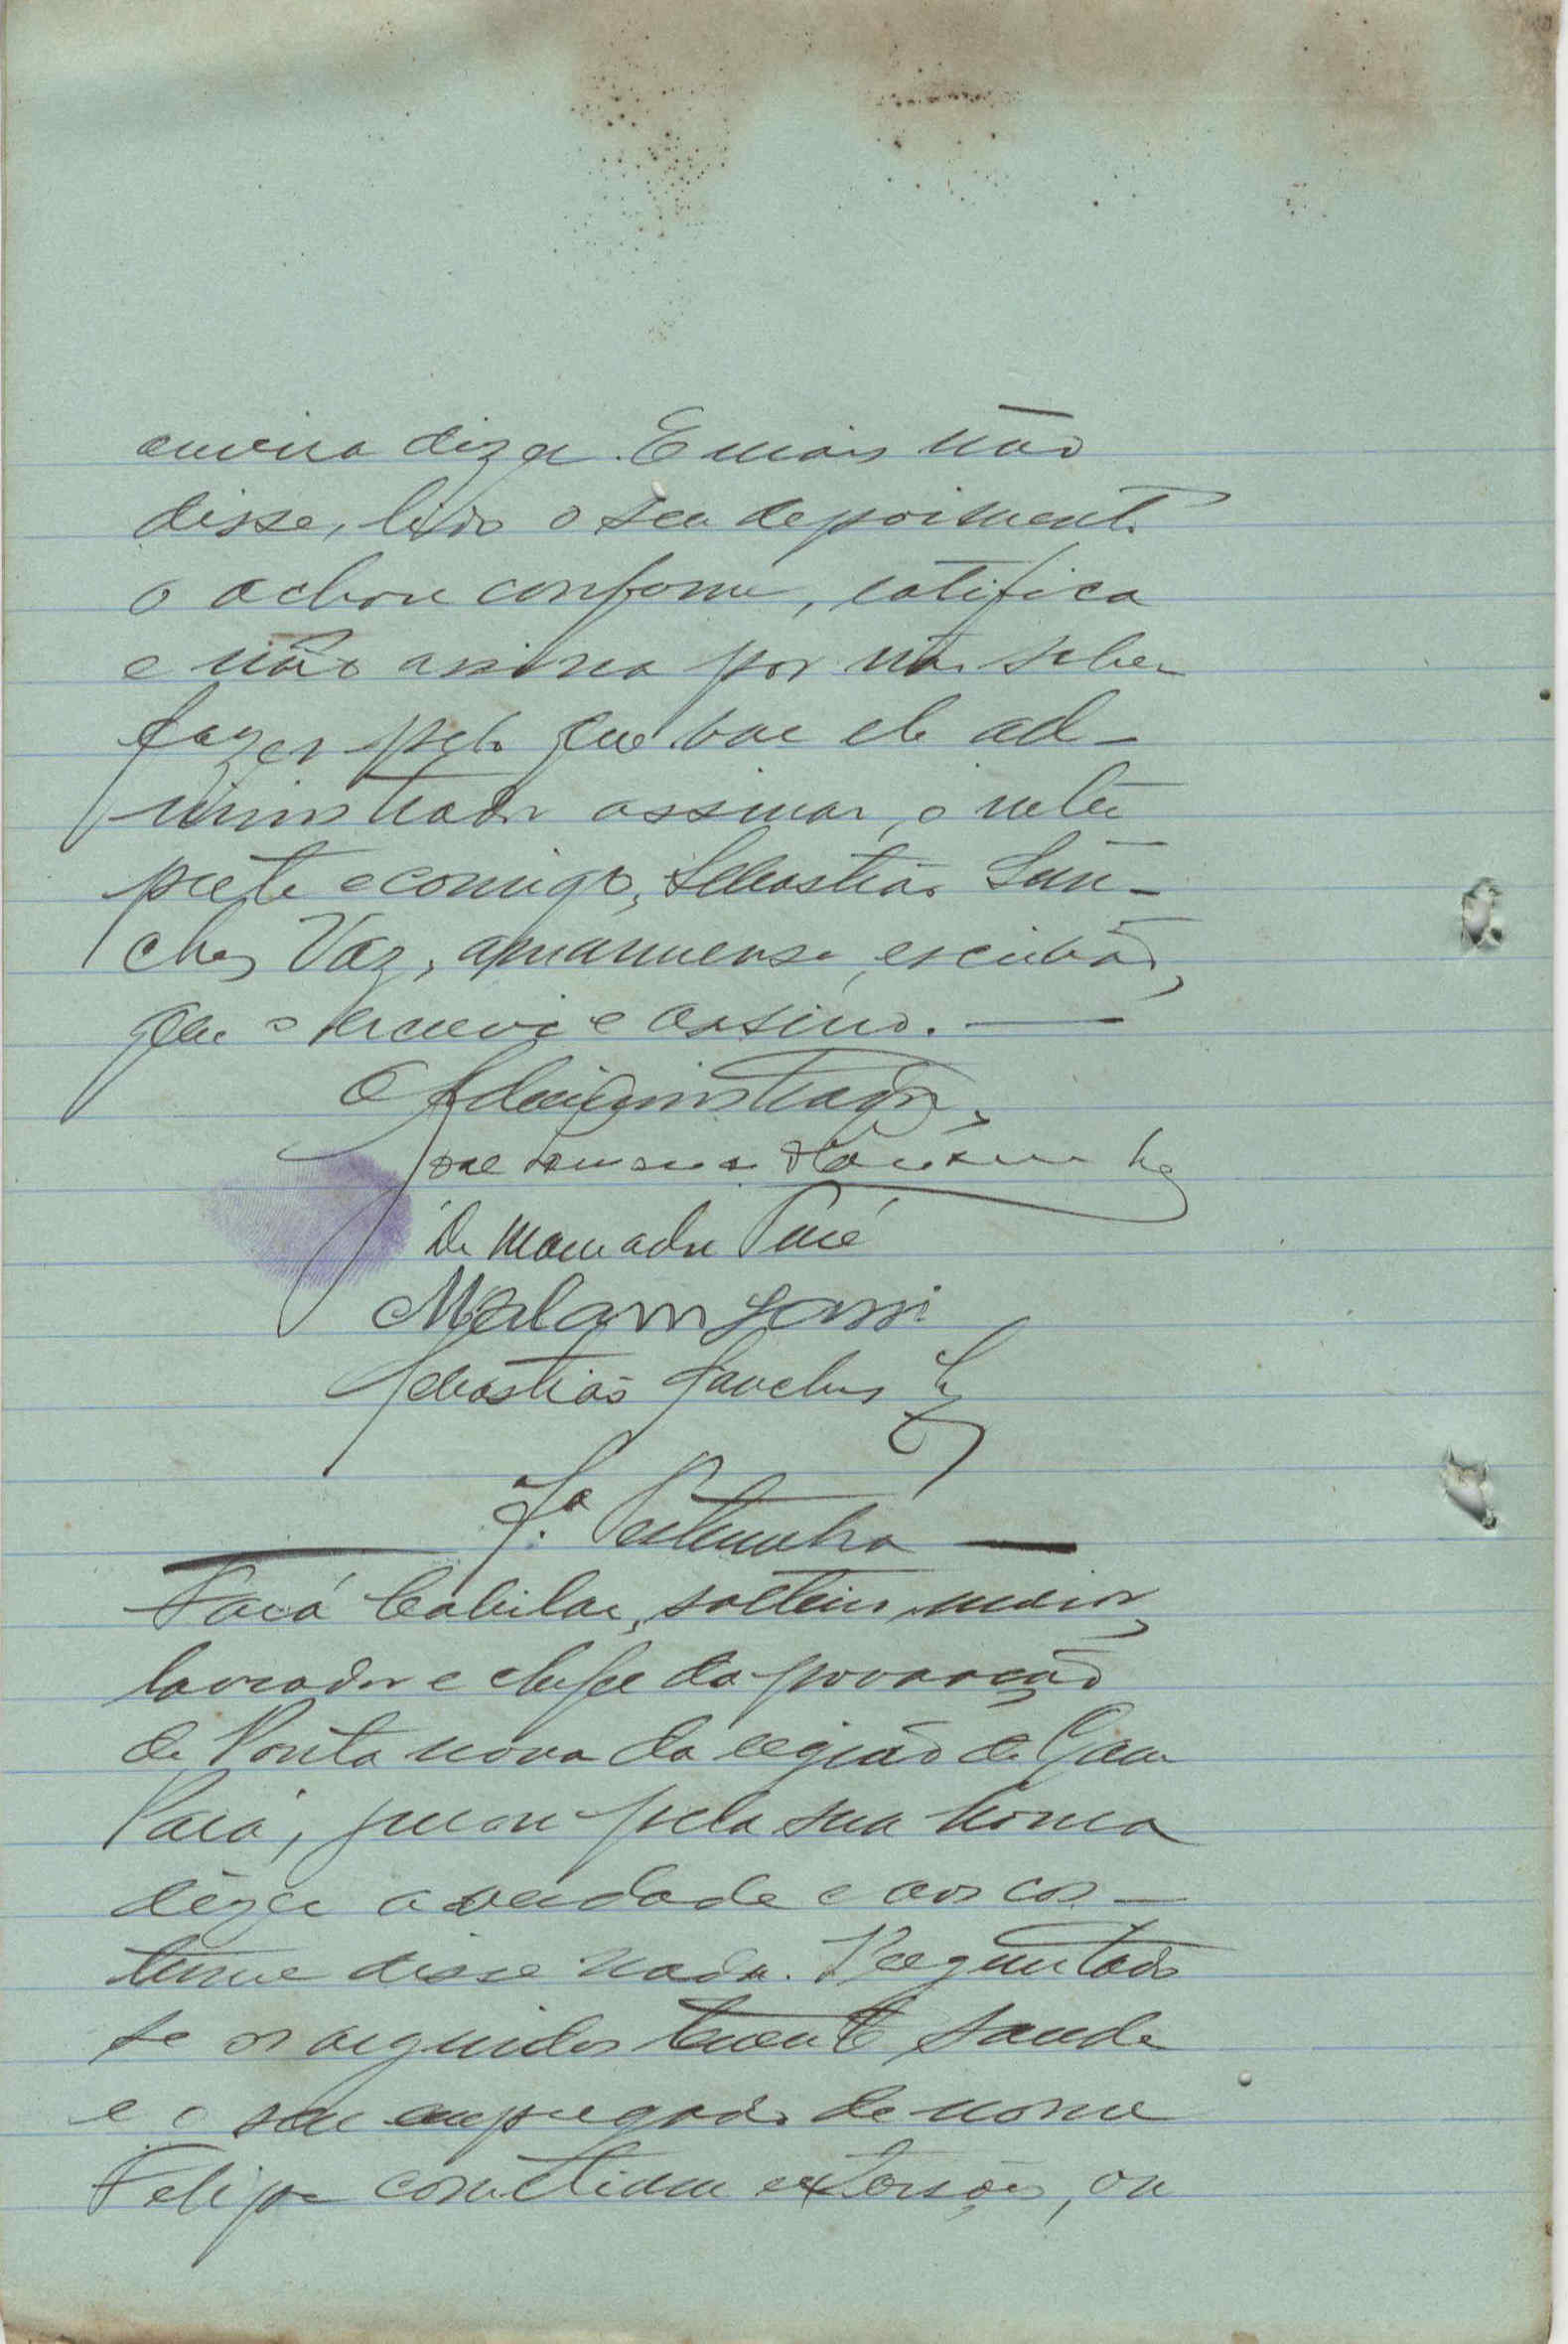 ouvira dizer. E mais não
disse, lido o seu depoimento
o achou conforme, ratifica
e não assina por não saber
fazer pelo que vae ele ad-
ministrador assinar, o inter
prete e comigo, Sebastião San-
ches Vaz, amanuense, escrivão,
que o escrevi e assino.
O Administrador,
José
De Mamadu Turé
Malam Sansi
Sebastião Sanches Vaz
7.ª Testemunha
Facá Cabilar, solteiro, maior,
lavrador e chefe da povoação
de Ponta nova da região de Gam
Pará, jurou pela sua honra
dizer a verdade e aos cos-
tume disse nada. Perguntado
se os arguidos tenente Saude
e o seu empregado de nome
Felipe cometiam extorsões, ou